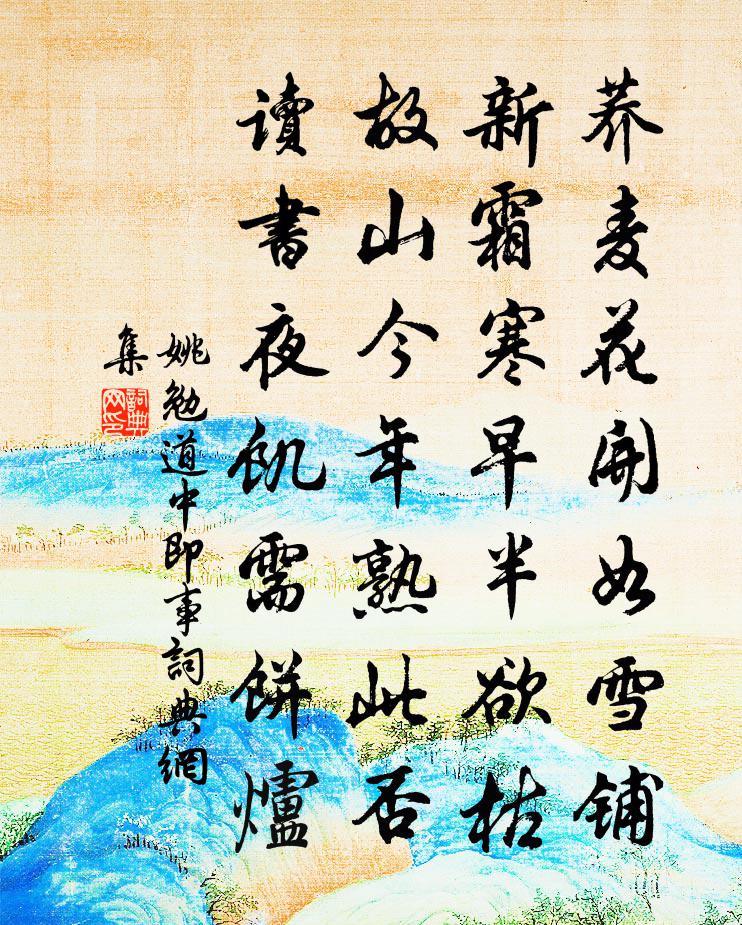 荞麦花開如雪铺
新霜寒早半欲枯
故山今年熟此否
讀書夜飢需餅爐
姚勉道中即事詞典網
集
詞典网印